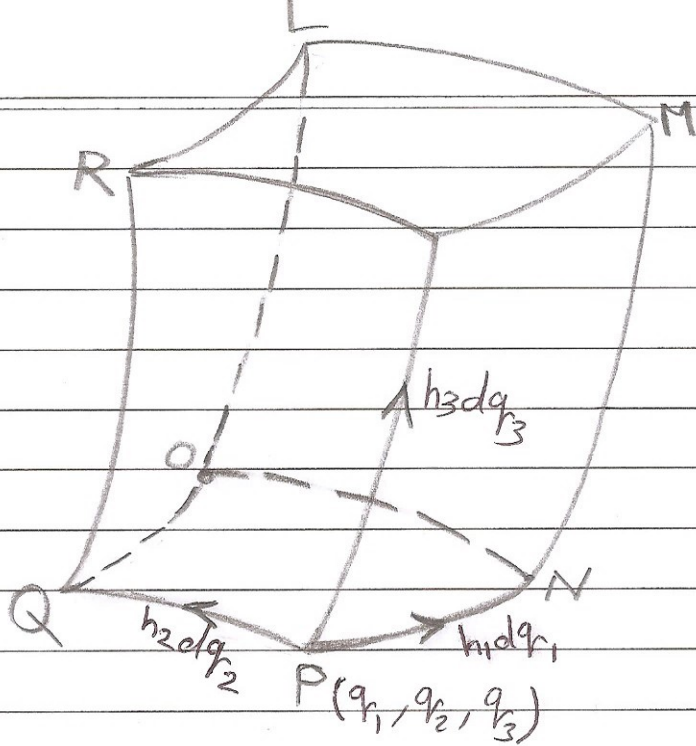 L
M
R
h₃dq₃
O
Q
N
h₂dq₂
h₁dq₁
P(q₁, q₂, q₃)